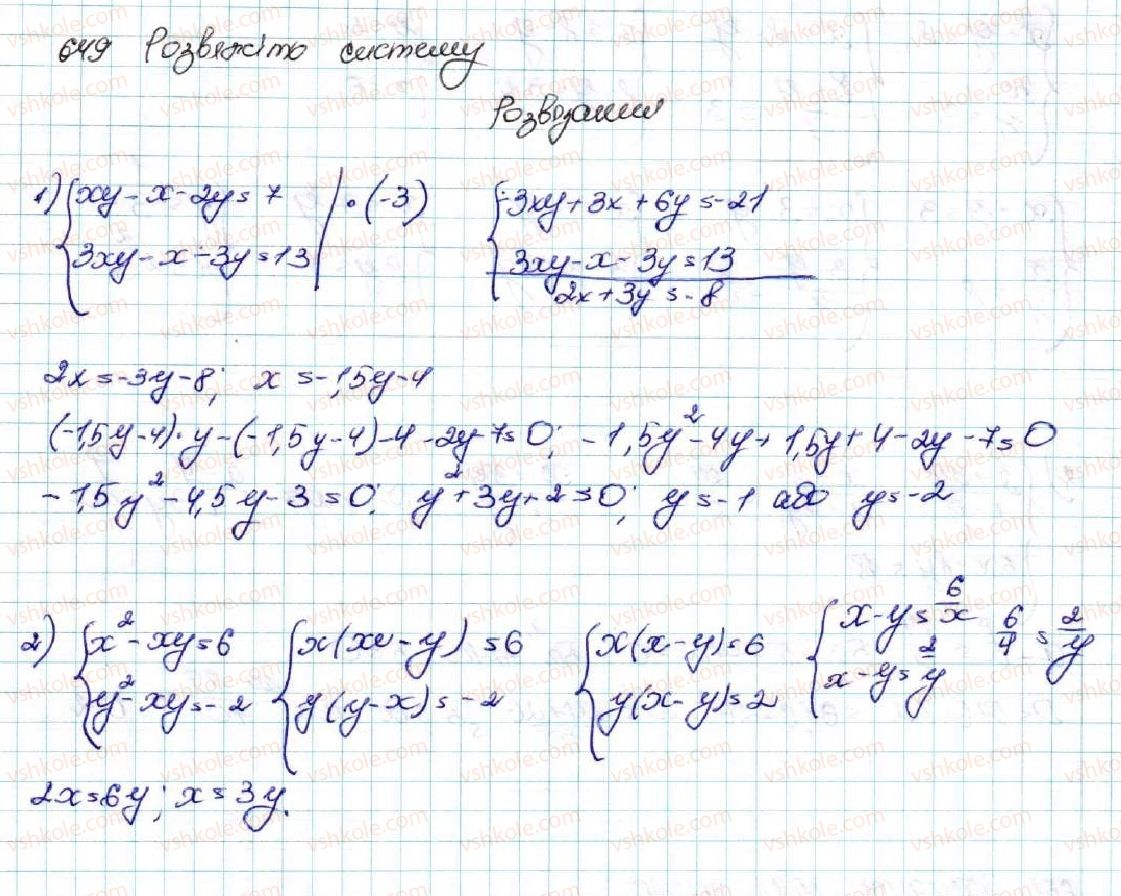 649 Розвяжіть систему
Розвязання
1) { xy - x - 2y = 7 | · (-3) { -3xy + 3x + 6y = -21
3xy - x - 3y = 13 | 3xy - x - 3y = 13
2x + 3y = -8
2x = -3y - 8; x = -1,5y - 4
(-1,5y - 4) · y - (-1,5y - 4) - 4 - 2y - 7 = 0; -1,5y² - 4y + 1,5y + 4 - 2y - 7 = 0
-1,5y² - 4,5y - 3 = 0; y² + 3y + 2 = 0; y = -1 або y = -2
2) { x² - xy = 6 { x(x - y) = 6 { x(x - y) = 6 { x - y = 6/x 6/4 = 2/y
y² - xy = -2 y(y - x) = -2 y(x - y) = 2 x - y = 2/y
2x = 6y; x = 3y.